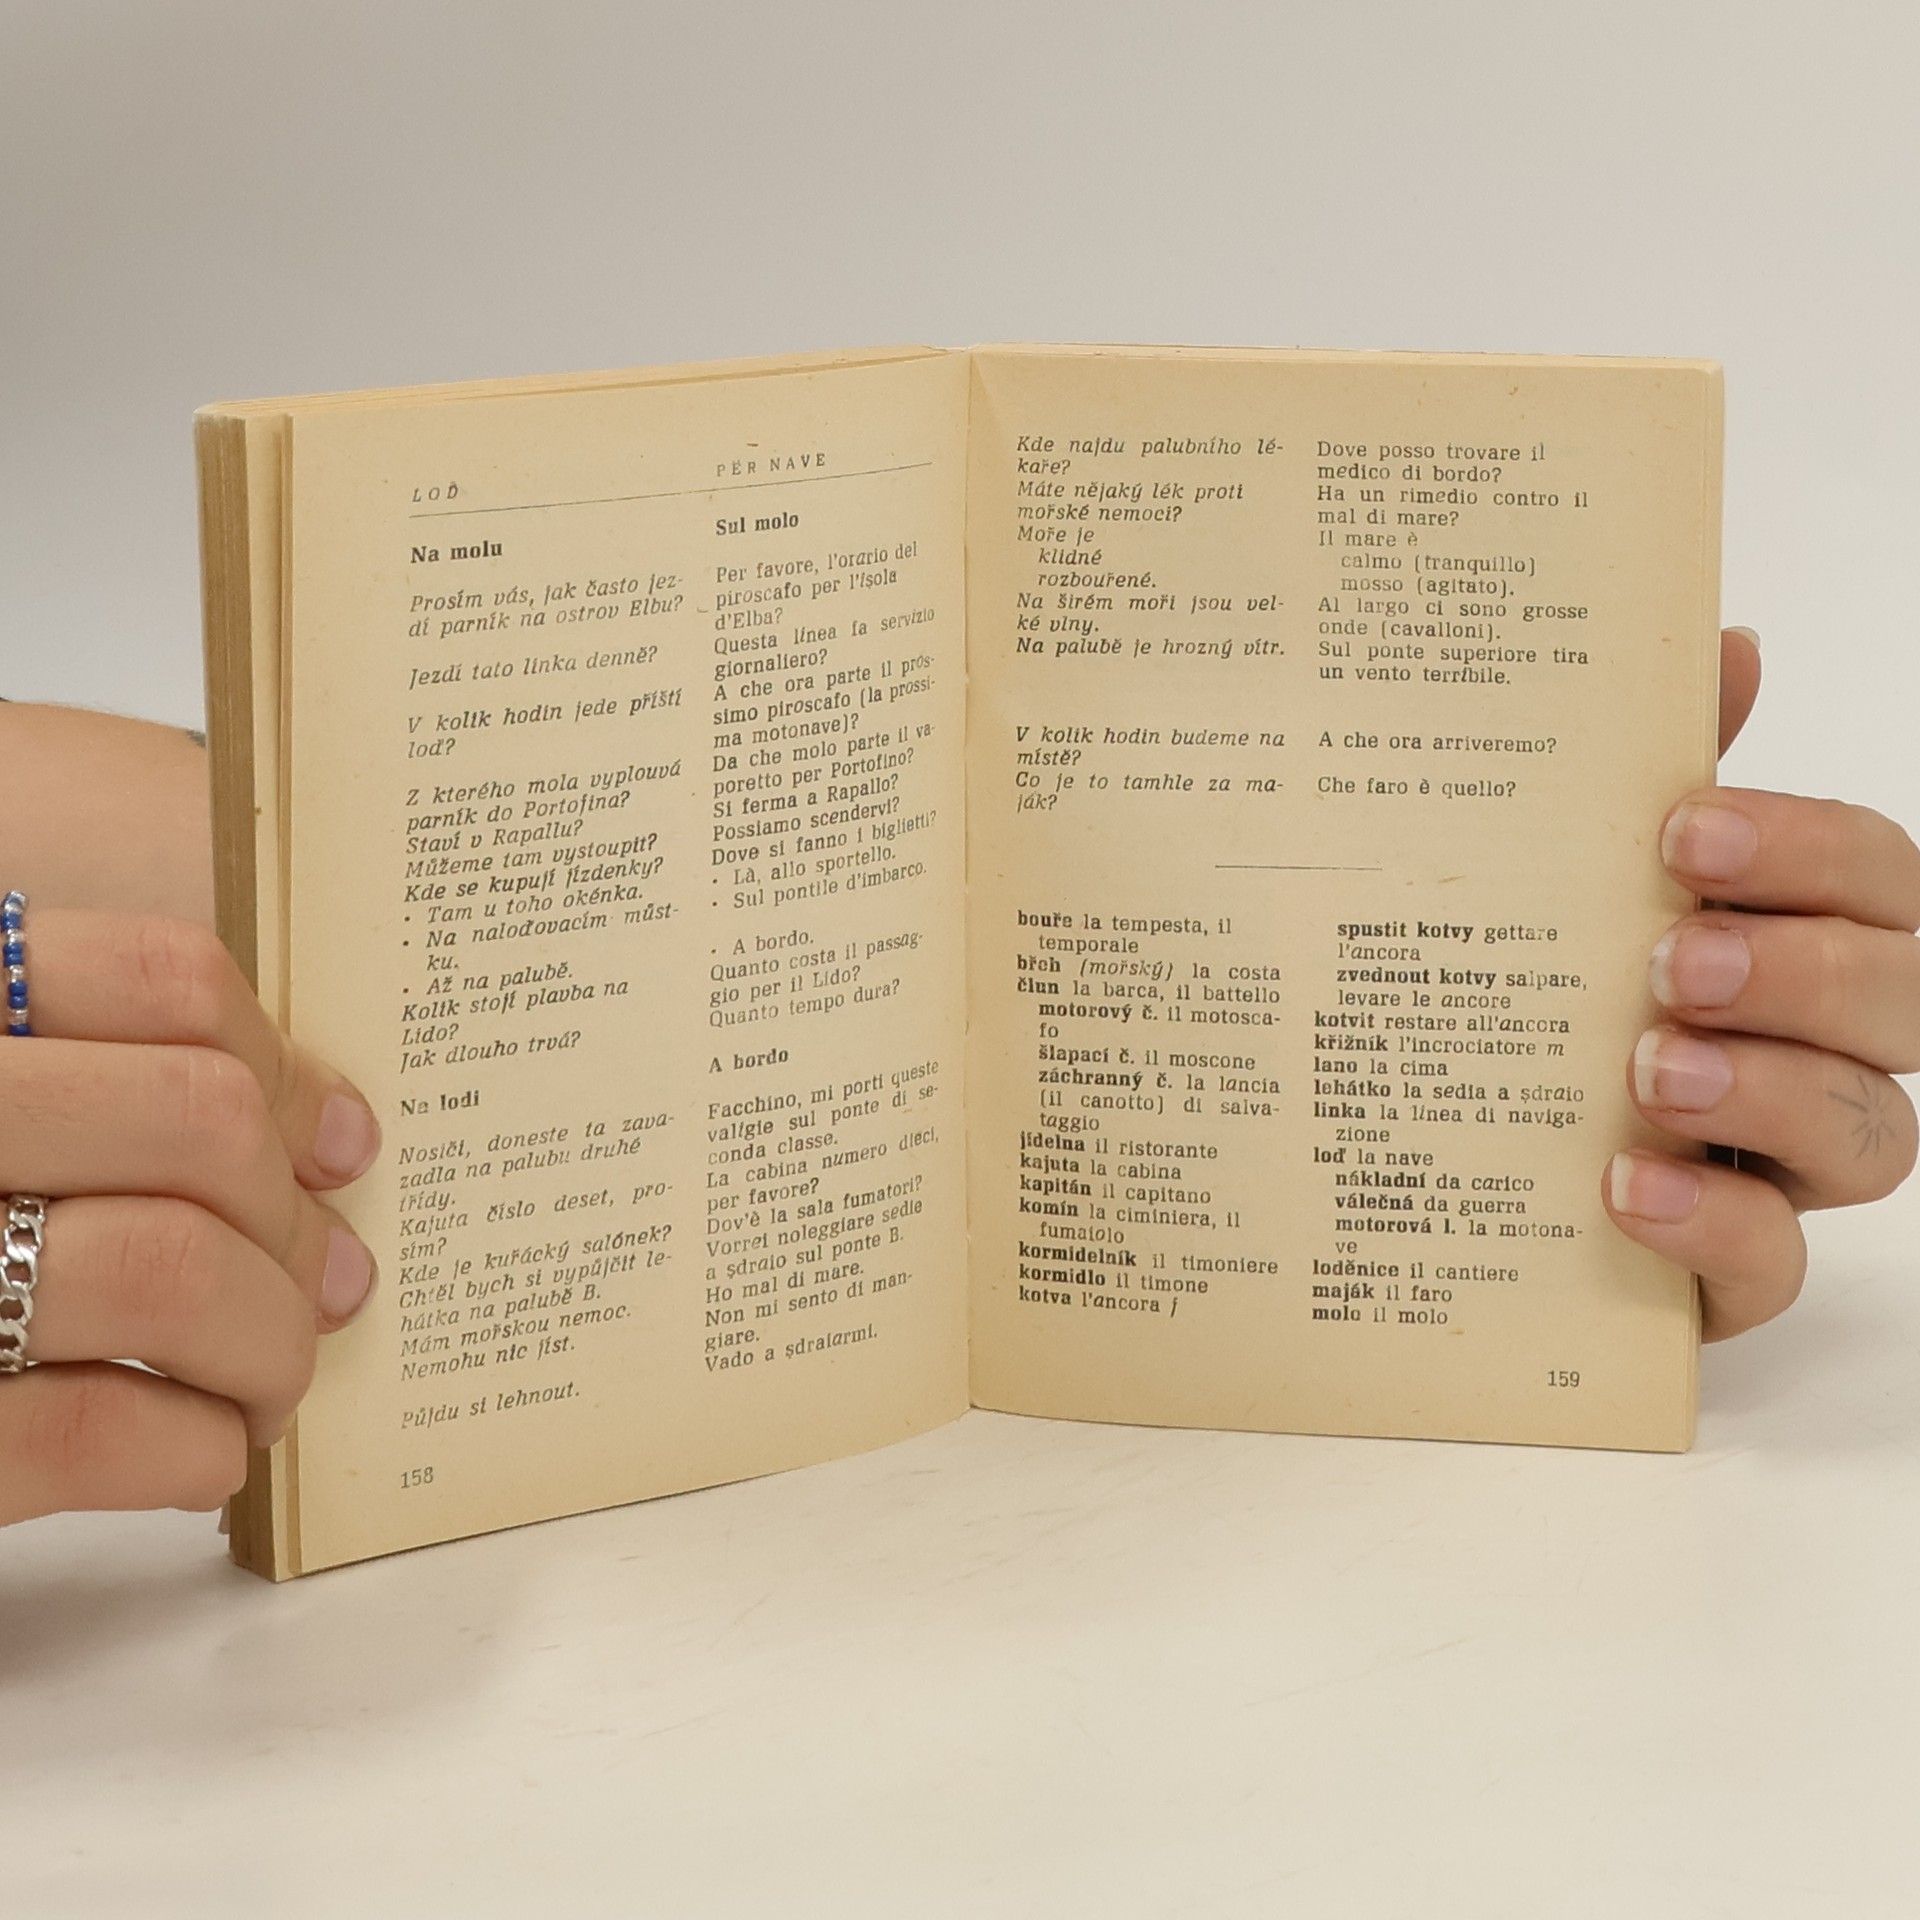 LOĎ
Na molu
Prosím vás, jak často jez-
dí parník na ostrov Elbu?
Jezdí tato linka denně?
V kolik hodin jede příští
loď?
Z kterého mola vyplouvá
parník do Portofina?
Staví v Rapallu?
Můžeme tam vystoupit?
Kde se kupují jízdenky?
• Tam u toho okénka.
• Na naloďovacím můst-
ku.
• Až na palubě.
Kolik stojí plavba na
Lido?
Jak dlouho trvá?
Na lodi
Nosiči, doneste ta zava-
zadla na palubu druhé
třídy.
Kajuta číslo deset, pro-
sím?
Kde je kuřácký salónek?
Chtěl bych si vypůjčit le-
hátka na palubě B.
Mám mořskou nemoc.
Nemohu nic jíst.
Půjdu si lehnout.
158
PER NAVE
Sul molo
Per favore, l'orario del
piroscafo per l'isola
d'Elba?
Questa línea fa servizio
giornaliero?
A che ora parte il pros-
simo piroscafo (la prossi-
ma motonave)?
Da che molo parte il va-
poretto per Portofino?
Si ferma a Rapallo?
Possiamo scendervi?
Dove si fanno i biglietti?
• Là, allo sportello.
• Sul pontile d'imbarco.
• A bordo.
Quanto costa il passag-
gio per il Lido?
Quanto tempo dura?
A bordo
Facchino, mi porti queste
valígie sul ponte di se-
conda classe.
La cabina numero dieci,
per favore?
Dov'è la sala fumatori?
Vorrei noleggiare sedie
a şdraio sul ponte B.
Ho mal di mare.
Non mi sento di man-
giare.
Vado a şdraiarmi.
Kde najdu palubního lé-
kaře?
Máte nějaký lék proti
mořské nemoci?
Moře je
klidné
rozbouřené.
Na širém moři jsou vel-
ké vlny.
Na palubě je hrozný vítr.
V kolik hodin budeme na
místě?
Co je to tamhle za ma-
ják?
Dove posso trovare il
medico di bordo?
Ha un rimedio contro il
mal di mare?
Il mare è
calmo (tranquillo)
mosso (agitato).
Al largo ci sono grosse
onde (cavalloni).
Sul ponte superiore tira
un vento terríbile.
A che ora arriveremo?
Che faro è quello?
bouře la tempesta, il
temporale
břeh (mořský) la costa
člun la barca, il battello
motorový č. il motosca-
fo
šlapací č. il moscone
záchranný č. la lancia
(il canotto) di salva-
taggio
jídelna il ristorante
kajuta la cabina
kapitán il capitano
komín la ciminiera, il
fumaiolo
kormidelník il timoniere
kormidlo il timone
kotva l'ancora f
spustit kotvy gettare
l'ancora
zvednout kotvy salpare,
levare le ancore
kotvit restare all'ancora
křižník l'incrociatore m
lano la cima
lehátko la sedia a şdraio
linka la línea di naviga-
zione
loď la nave
nákladní da carico
válečná da guerra
motorová l. la motona-
ve
loděnice il cantiere
maják il faro
molo il molo
159